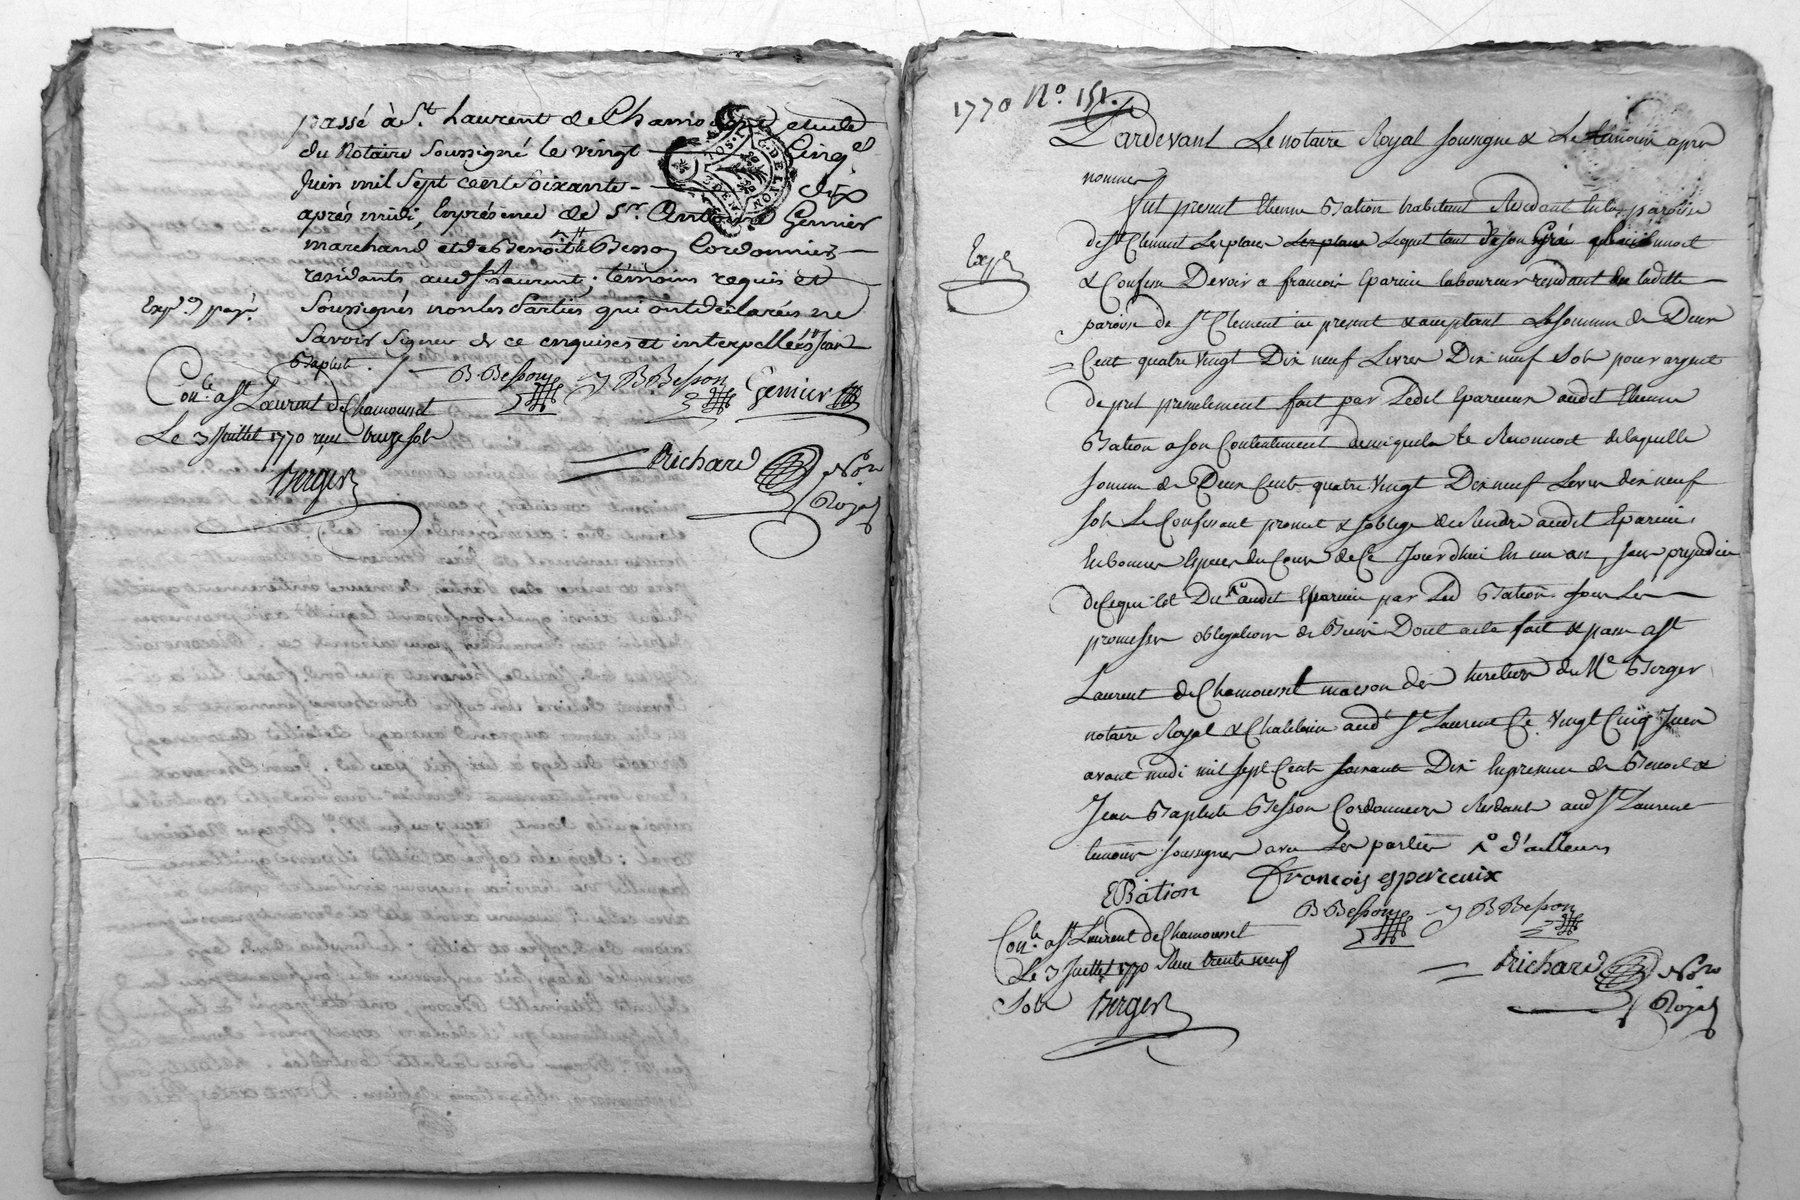 passé à St. Laurent de Chamousset etude
du Notaire Soussigné le vingt Cinq
Juin mil Sept cent Soixante - dix
après midi, En présence de Sr. Antoine Gernier
marchand et de Benoît Besson Cordonniers
residants aud. St Laurent; témoins requis et
Soussignés non les Parties qui ont déclarées ne
Savoir Signer de ce enquises et interpellées Jean
Baptiste
Exp. payé
B. Besson J B Besson Gernier
Conlé. a St Laurent de Chamousset
Le 3 Juillet 1770 reçu treize sols
Berger
Richard Nore
Royal
G. DE LYON
1770 No. 151.
Pardevant Le notaire Royal soussigné & Les temoins apres
nommes
Fut present Etienne Bation habitant Residant en la paroisse
de St Clement Les places Les places Lequel tant de son gré reconnoit
& Confesse Devoir a francois Eparcieu laboureur residant en ladite
paroisse de St Clement ici present & acceptant La Somme de Deux
Cent quatre vingt Dix neuf Livres Dix neuf sols pour argent
de pret presentement fait par Ledit Eparcieux audit Etienne
Bation a son Contentement ainsi quil le Reconnoit de laquelle
somme de Deux Cent quatre vingt Dix neuf Livres dix neuf
sols Le Confessant promet & soblige de Rendre audit Eparcieu
En bonnes Especes du Cours de Ce Jourdhui En un an, sans prejudice
de Ce qui Est Du audit Eparcieu par Led Bation sous Les
promesses obligations de Biens Dont acte fait & passé a St
Laurent de Chamousset maison des heritiers de Me Berger
notaire Royal & Chatelain aud St Laurent Ce vingt Cinq Juin
avant midi mil sept Cent soixante Dix En presence de Benoit &
Jean Baptiste Besson Cordonniers Residants aud St Laurent
temoins soussignés avec Les parties d'ailleurs
Expé
EBation Francois esperceuix
B Besson J B Besson
Conlé. a St Laurent de Chamousset
Le 3 Juillet 1770 Reçu trente neuf
Sols Berger
Richard Nore
Royal